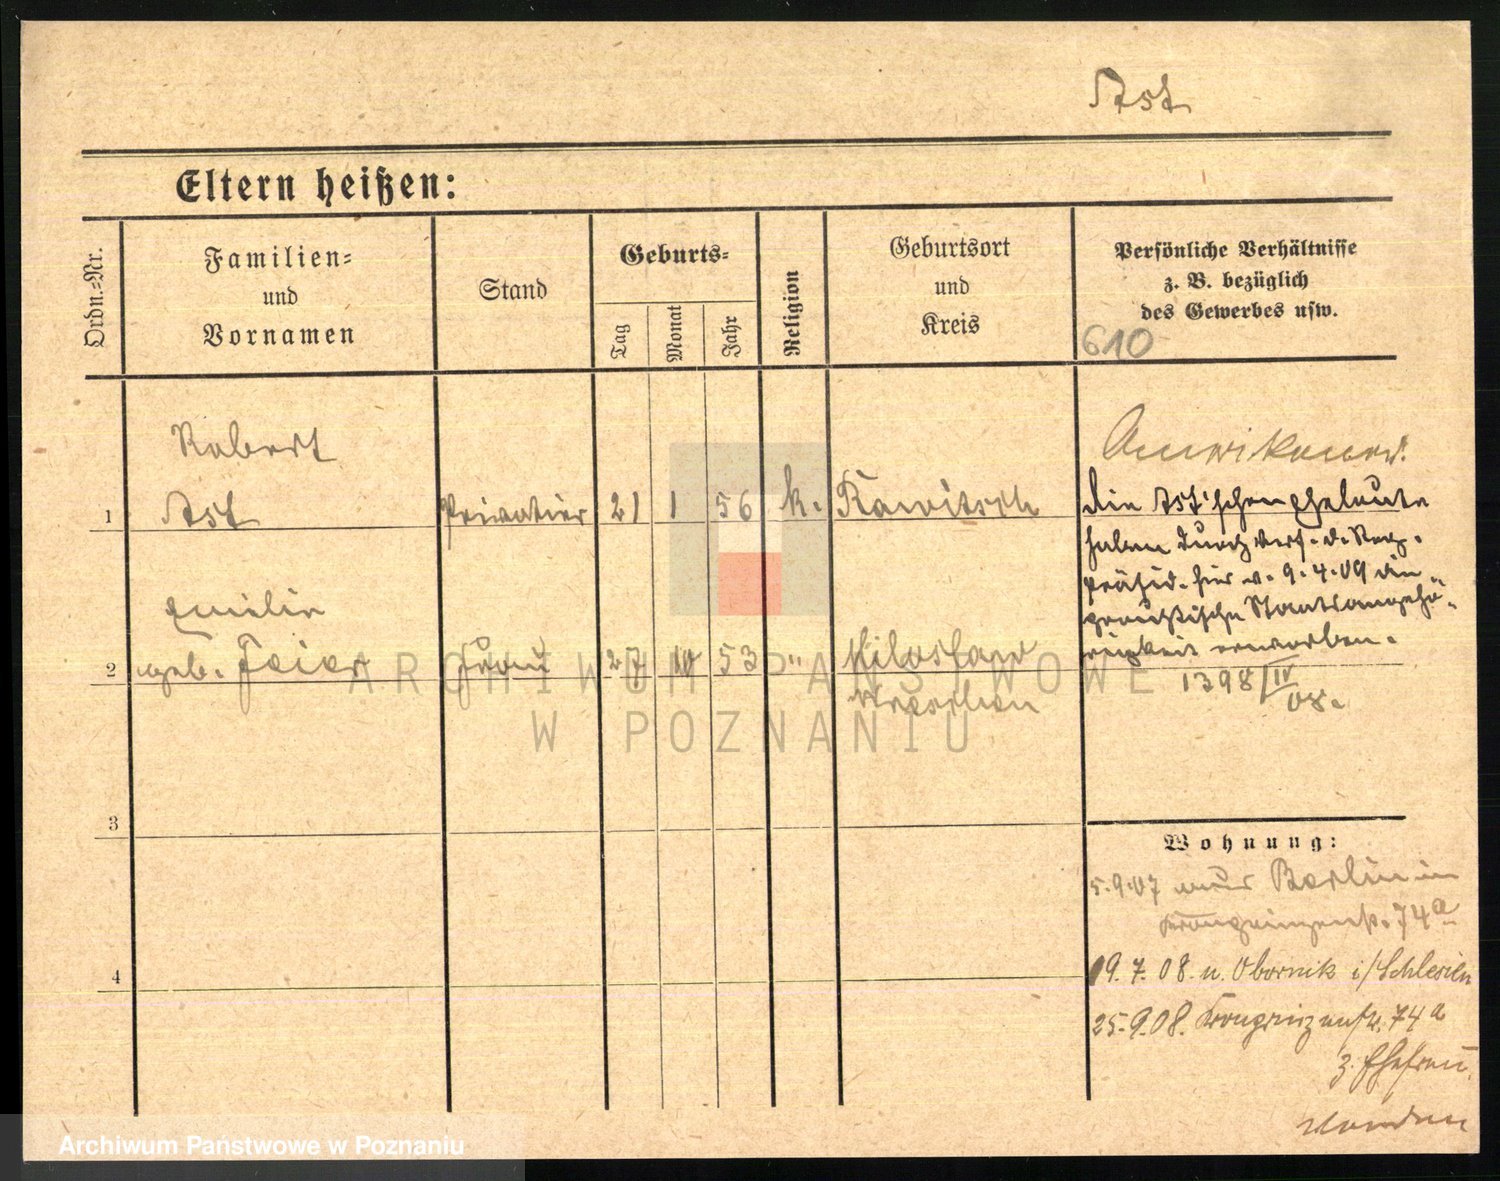 Ast
Eltern heißen:
Ordn.-Nr.
Familien-
und
Vornamen
Stand
Geburts-
Tag
Monat
Jahr
Religion
Geburtsort
und
Kreis
Persönliche Verhältnisse
z. B. bezüglich
des Gewerbes usw.
610
Robert
1 Ast Privatier 21 1 56 k. Rawitsch
Emilie
2 geb. Feier Frau 27 10 53 " Miloslaw
Wreschen
Amerikaner.
Die Ast'schen Eheleute
haben durch Verf. d. Reg.
präsid. hier v. 9.4.09 die
preußische Staatsangehö-
rigkeit erworben.
1398/IV
08.
3
4
Wohnung:
5.9.07 aus Berlin in
Kronprinzenstr. 74a
19.7.08. n. Obornik i/Schlesien
25.9.08. Kronprinzenstr. 74a
z. Ehefrau
ARCHIWUM PAŃSTWOWE
W POZNANIU
Archiwum Państwowe w Poznaniu